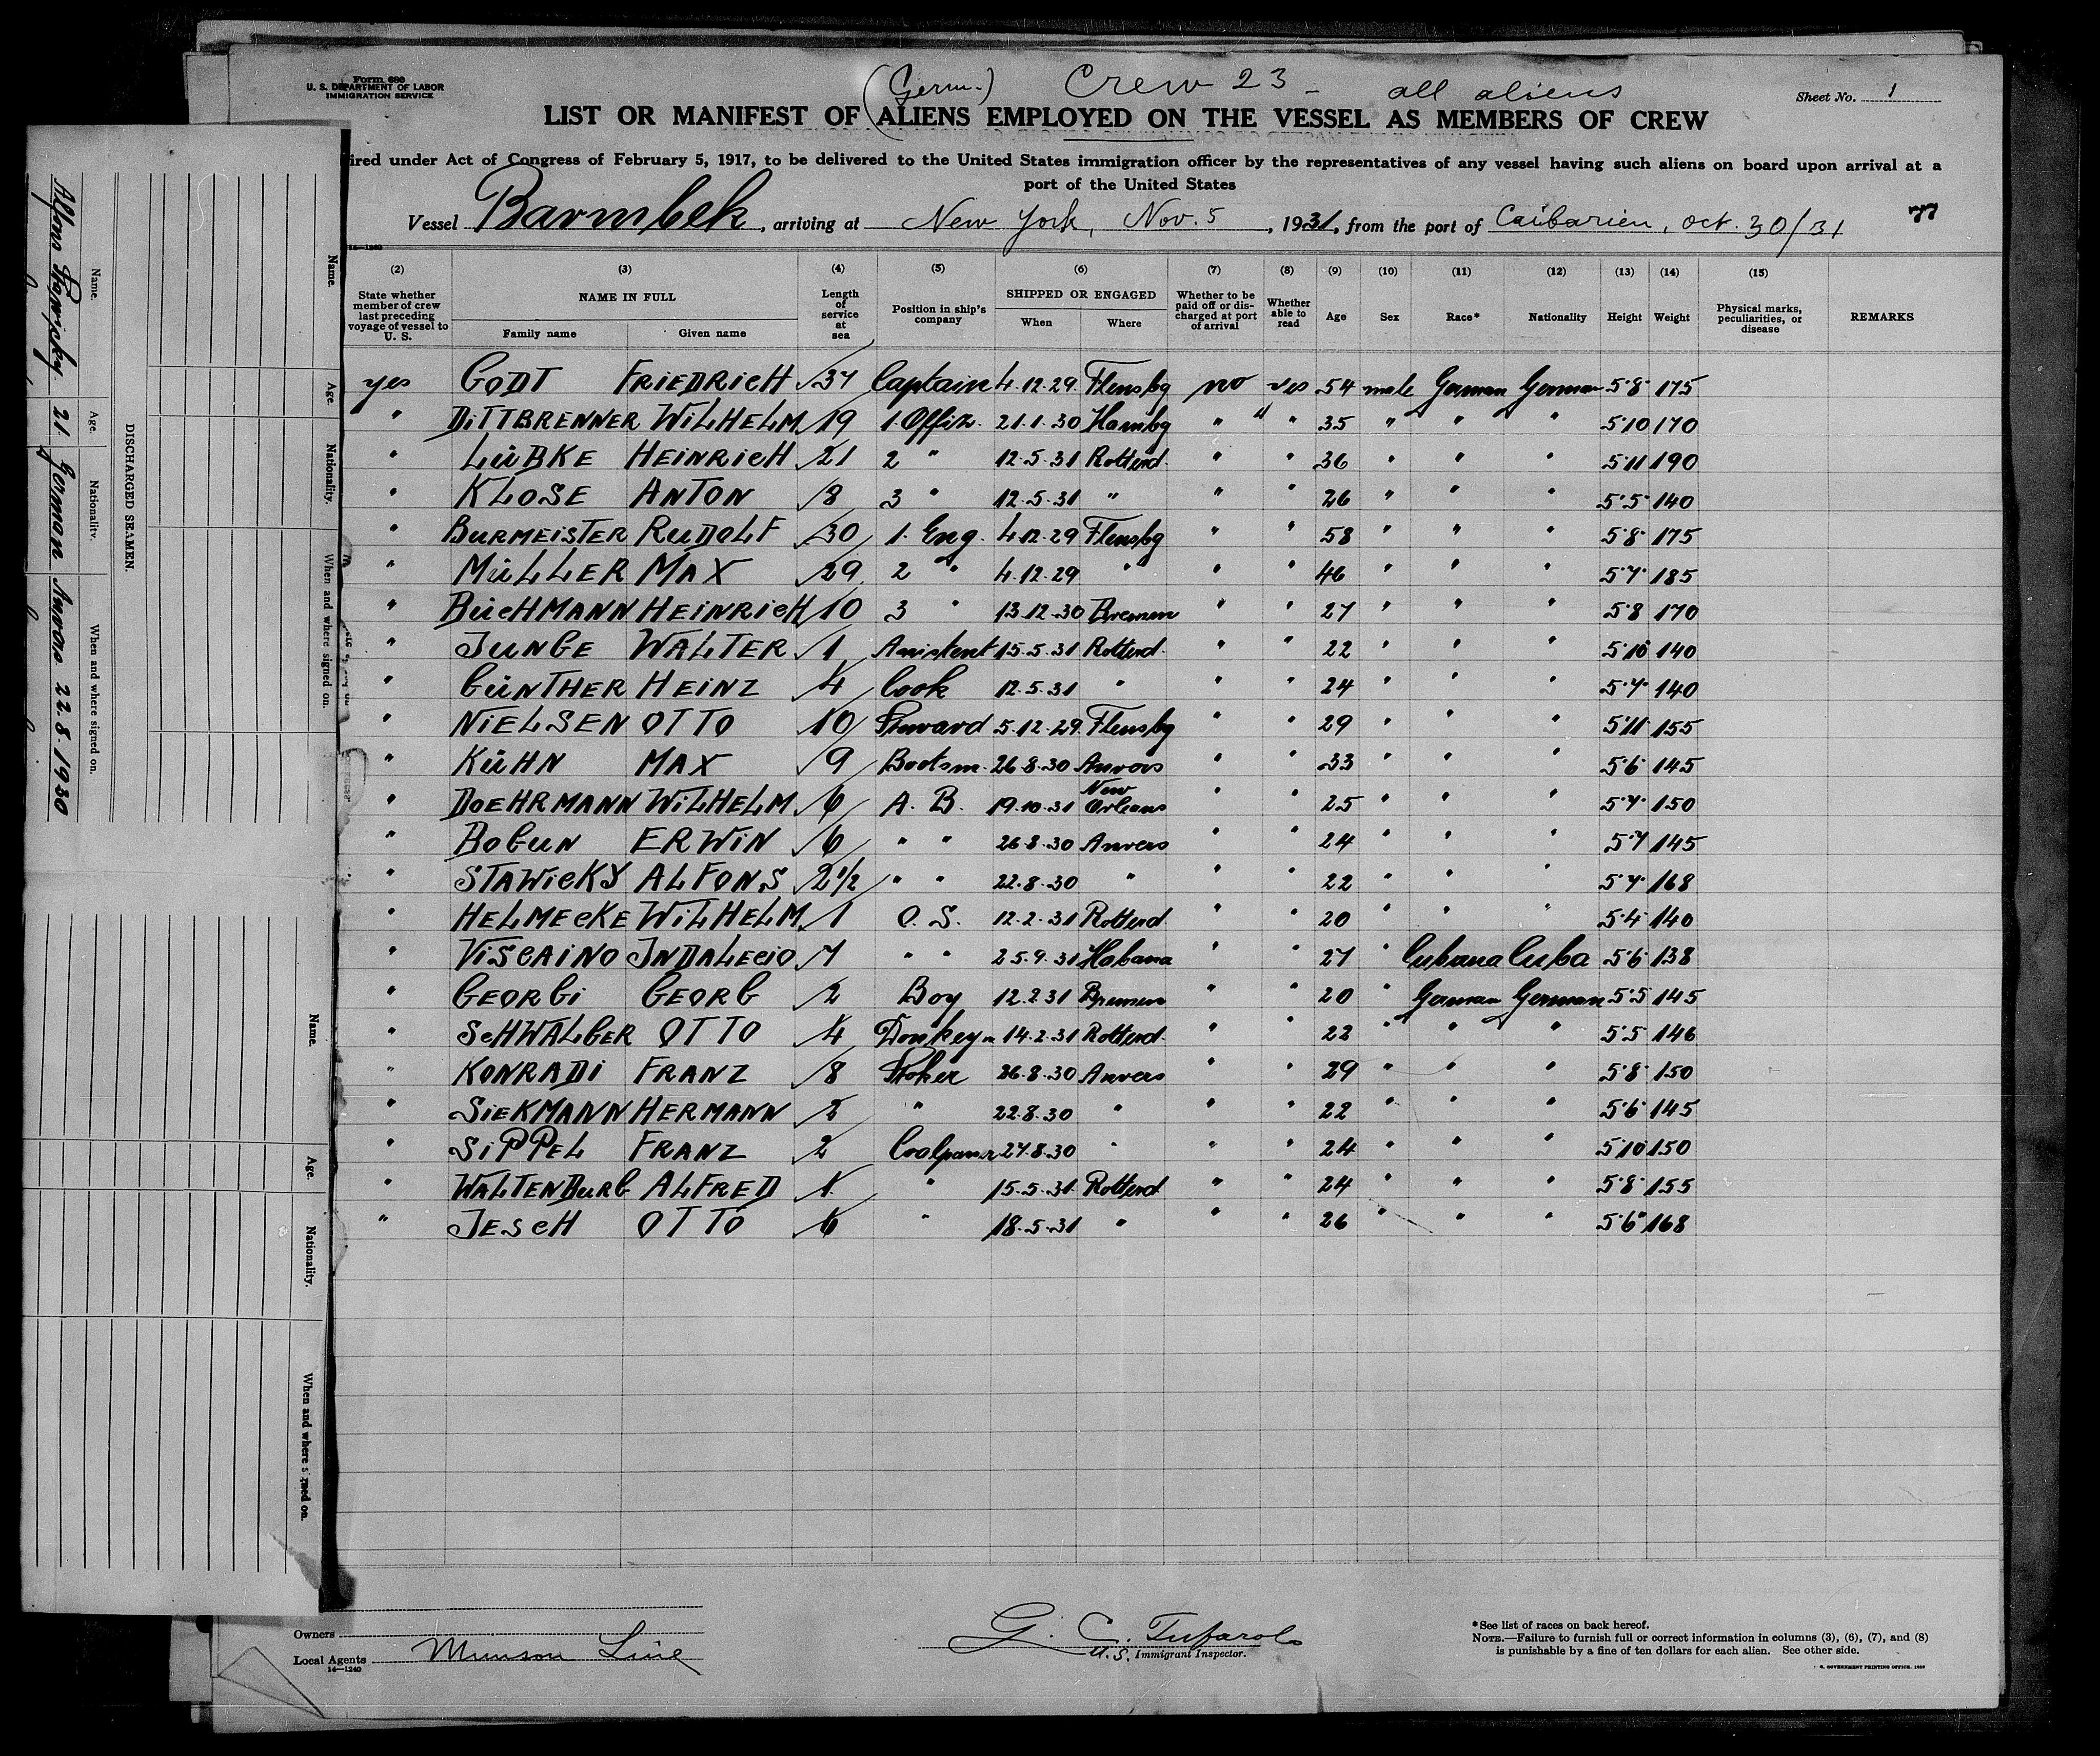 Form 680
U. S. DEPARTMENT OF LABOR
IMMIGRATION SERVICE
(Germ.) Crew 23 - all aliens
Sheet No. 1
LIST OR MANIFEST OF ALIENS EMPLOYED ON THE VESSEL AS MEMBERS OF CREW
ired under Act of Congress of February 5, 1917, to be delivered to the United States immigration officer by the representatives of any vessel having such aliens on board upon arrival at a
port of the United States
Vessel Barmbek, arriving at New York, Nov. 5, 1931, from the port of Caibarien, oct. 30/31
77
14—1240
(2) (3) (4) (5) (6) (7) (8) (9) (10) (11) (12) (13) (14) (15)
State whether member of crew last preceding voyage of vessel to U. S. NAME IN FULL Family name Given name Length of service at sea Position in ship's company SHIPPED OR ENGAGED When Where Whether to be paid off or discharged at port of arrival Whether able to read Age Sex Race* Nationality Height Weight Physical marks, peculiarities, or disease REMARKS
yes GODT FRIEDRICH 37 Captain 4.12.29 Flensbg no yes 54 male German German 5'8" 175
" DITTBRENNER WILHELM 19 1. Offiz. 21.1.30 Hambg " " 35 " " " 5'10 170
" LÜBKE HEINRICH 21 2 " 12.5.31 Rotterd. " " 36 " " " 5'11 190
" KLOSE ANTON 8 3 " 12.5.31 " " " 26 " " " 5'5" 140
" BURMEISTER RUDOLF 30 1. Eng. 4.12.29 Flensbg " " 58 " " " 5'8" 175
" MÜLLER MAX 29 2 " 4.12.29 " " " 46 " " " 5'7" 185
" BÜCHMANN HEINRICH 10 3 " 13.12.30 Bremen " " 27 " " " 5'8 170
" JUNGE WALTER 1 Assistent 15.5.31 Rotterd. " " 22 " " " 5'10 140
" GÜNTHER HEINZ 4 Cook 12.5.31 " " " 24 " " " 5'7" 140
" NIELSEN OTTO 10 Steward 5.12.29 Flensbg " " 29 " " " 5'11 155
" KÜHN MAX 9 Bootsm. 26.8.30 Anvers " " 33 " " " 5'6" 145
" DOEHRMANN WILHELM 6 A. B. 19.10.31 New Orleans " " 25 " " " 5'7" 150
" BOGUN ERWIN 6 " " 26.8.30 Anvers " " 24 " " " 5'7 145
" STAWICKY ALFONS 2½ " " 22.8.30 " " " 22 " " " 5'7" 168
" HELMECKE WILHELM 1 O. S. 12.2.31 Rotterd. " " 20 " " " 5'4" 140
" VISCAINO INDALECIO 7 " " 25.9.31 Habana " " 27 " Cubana Cuba 5'6" 138
" GEORGI GEORG 2 Boy 12.2.31 Bremen " " 20 " German German 5'5 145
" SCHWALGER OTTO 4 Donkeym 14.2.31 Rotterd. " " 22 " " " 5'5 146
" KONRADI FRANZ 8 Stoker 26.8.30 Anvers " " 29 " " " 5'8" 150
" SIEKMANN HERMANN 2 " 22.8.30 " " " 22 " " " 5'6" 145
" SIPPEL FRANZ 2 27.8.30 " " " 24 " " " 5'10 150
" WALTENBURG ALFRED 1 " 15.5.31 Rotterd " " 24 " " " 5'8" 155
" JESCH OTTO 6 " 18.5.31 " " " 26 " " " 5'6" 168
Owners
Local Agents Munson Line
14—1240
G. C. Tufarolo
U.S. Immigrant Inspector.
*See list of races on back hereof.
NOTE.—Failure to furnish full or correct information in columns (3), (6), (7), and (8)
is punishable by a fine of ten dollars for each alien. See other side.
GOVERNMENT PRINTING OFFICE
DISCHARGED SEAMEN.
Name. Age. Nationality. When and where signed on.
Alfons 21. German Anvers 22.8.1930
Name. Age. Nationality. When and where signed on.
Name. Age. Nationality. When and where signed on.